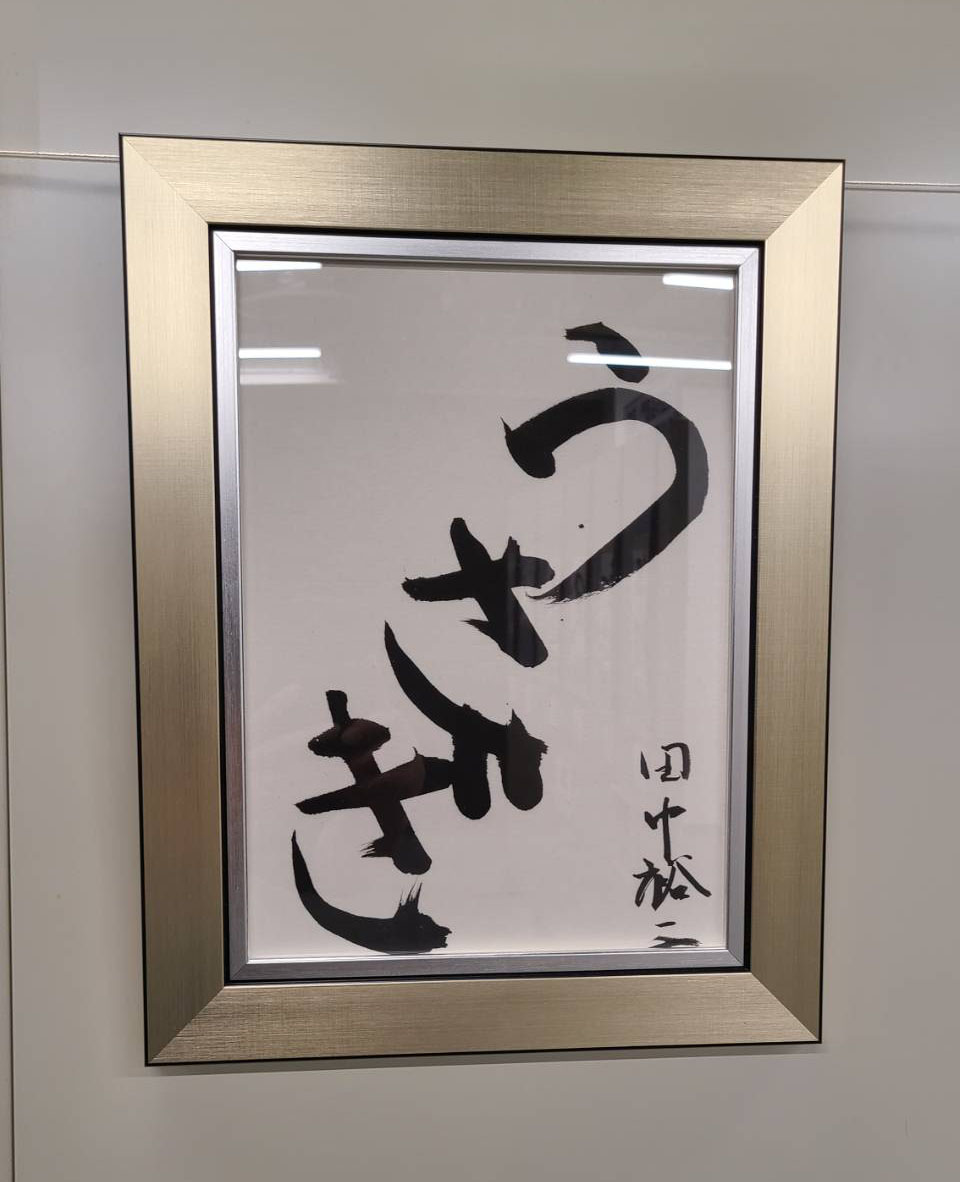 うさぎ
田中裕二